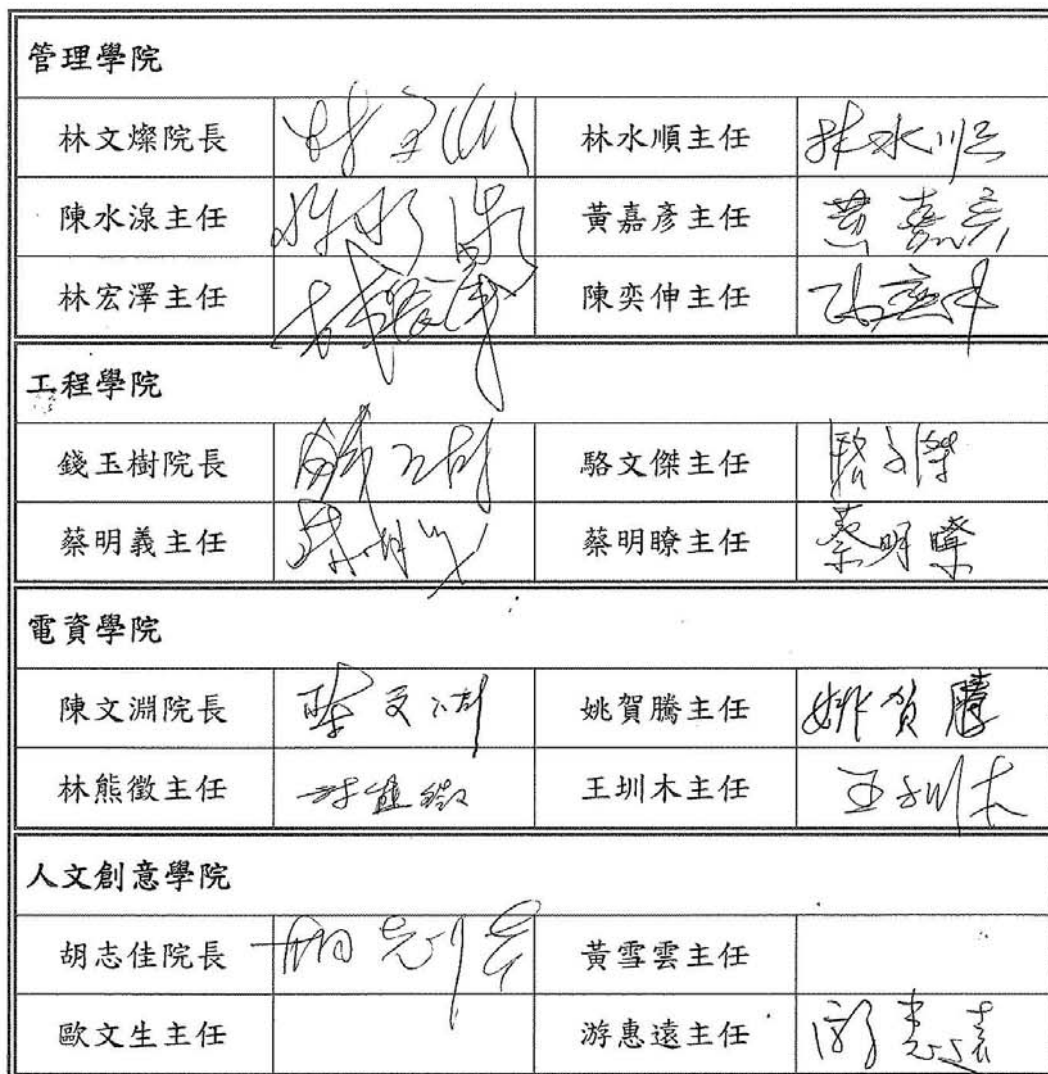 管理學院
林文燦院長 林水順主任 林水順
陳水湶主任 黃嘉彥主任 黃嘉彥
林宏澤主任 陳奕伸主任
工程學院
錢玉樹院長 駱文傑主任 駱文傑
蔡明義主任 蔡明瞭主任 蔡明瞭
電資學院
陳文淵院長 陳文淵 姚賀騰主任 姚賀騰
林熊徵主任 林熊徵 王圳木主任 王圳木
人文創意學院
胡志佳院長 黃雪雲主任
歐文生主任 游惠遠主任 游惠遠